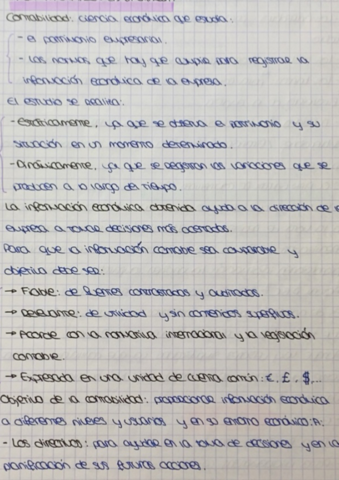 Contabilidad: ciencia económica que estudia:
- el patrimonio empresarial.
- Las normas que hay que cumplir para registrar la
información económica de la empresa.
El estudio se realiza:
- Estáticamente, ya que se observa el patrimonio y su
situación en un momento determinado.
- Dinámicamente, ya que se registran las variaciones que se
producen a lo largo del tiempo.
La información económica obtenida ayuda a la dirección de
empresa a tomar decisiones más acertadas.
Para que la información contable sea comparable y
objetiva debe ser:
→ Fiable: de fuentes contrastadas y auditadas.
→ Relevante: de utilidad y sin contenidos superfluos.
→ Acorde con la normativa internacional y la legislación
contable.
→ Expresada en una unidad de cuenta común: €, £, $,...
Objetivo de la contabilidad: proporcionar información económica
a diferentes niveles y usuarios y en su entorno económico: A:
- Los directivos: para ayudar en la toma de decisiones y en la
planificación de sus futuras acciones.